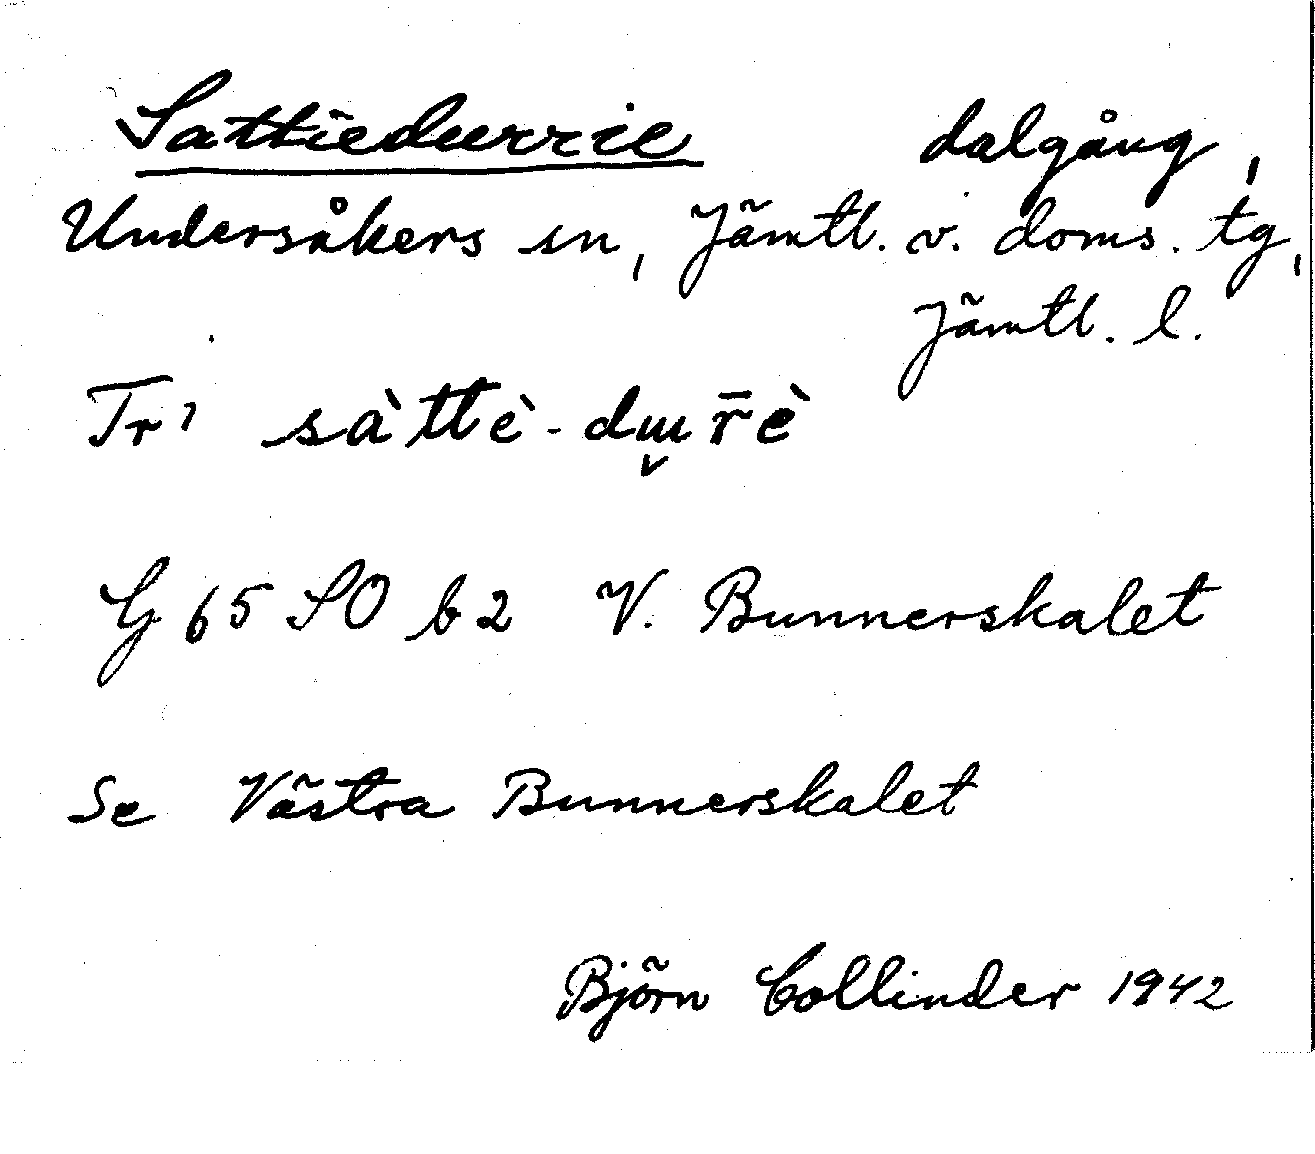 Sattiedurrie dalgång,
Undersåkers sn, Jämtl. v. doms. tg,
Jämtl. l.
Tr¹ sàttè-dɯ̬r̄è
G 65 SO b2 V. Bunnerskalet
Se Västra Bunnerskalet
Björn Collinder 1942